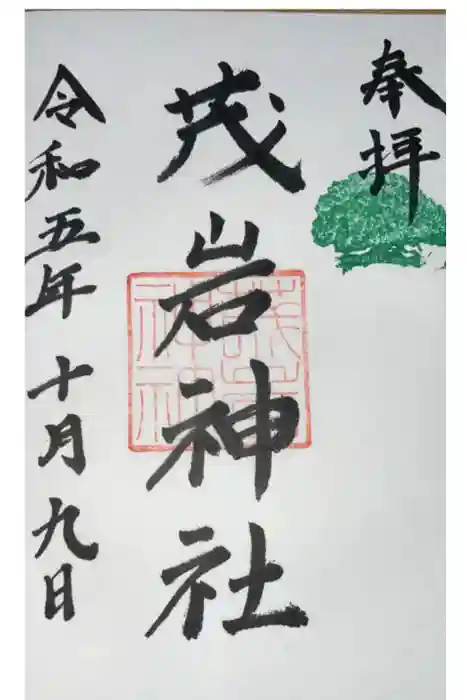 奉拝
茂岩神社
令和五年十月九日